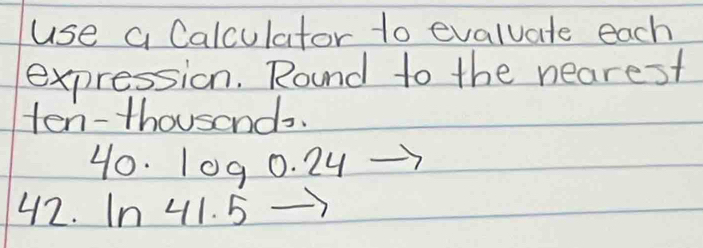 use a Calculator to evaluate each
expression. Round to the nearest
ten-thousands.
40. log 0.24 →
42. ln 41.5 →